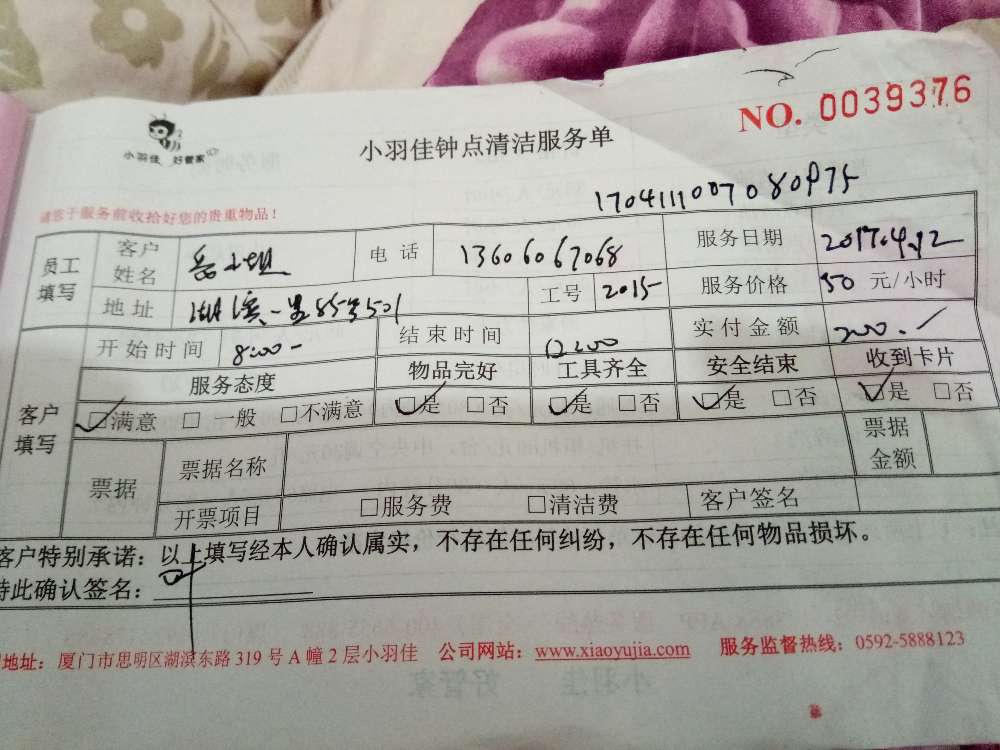 小羽佳 好管家
小羽佳钟点清洁服务单
NO. 0039376
请您于服务前收拾好您的贵重物品！
员工填写
客户姓名 小姐
电话 13606067068
服务日期 2017.4.12
地址 湖滨一里85号501
工号 2015
服务价格 50 元/小时
开始时间 8:00-
结束时间 12:00
实付金额 200.-
客户填写
服务态度 物品完好 工具齐全 安全结束 收到卡片
☑满意 □一般 □不满意 ☑是 □否 ☑是 □否 ☑是 □否 ☑是 □否
票据
票据名称
票据金额
开票项目 □服务费 □清洁费 客户签名
客户特别承诺：以上填写经本人确认属实，不存在任何纠纷，不存在任何物品损坏。
特此确认签名： 叶
地址：厦门市思明区湖滨东路 319 号 A 幢 2 层小羽佳 公司网站：www.xiaoyujia.com 服务监督热线：0592-5888123